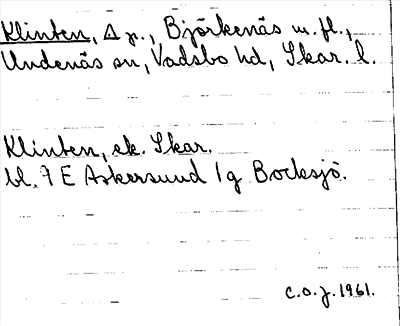 Klinten, Δ p., Björkenäs m. fl.,
Undenäs sn, Vadsbo hd, Skar. l.
Klinten, ek. Skar.
bl. 7 E Askersund 1g Bocksjö.
C.O.J. 1961.